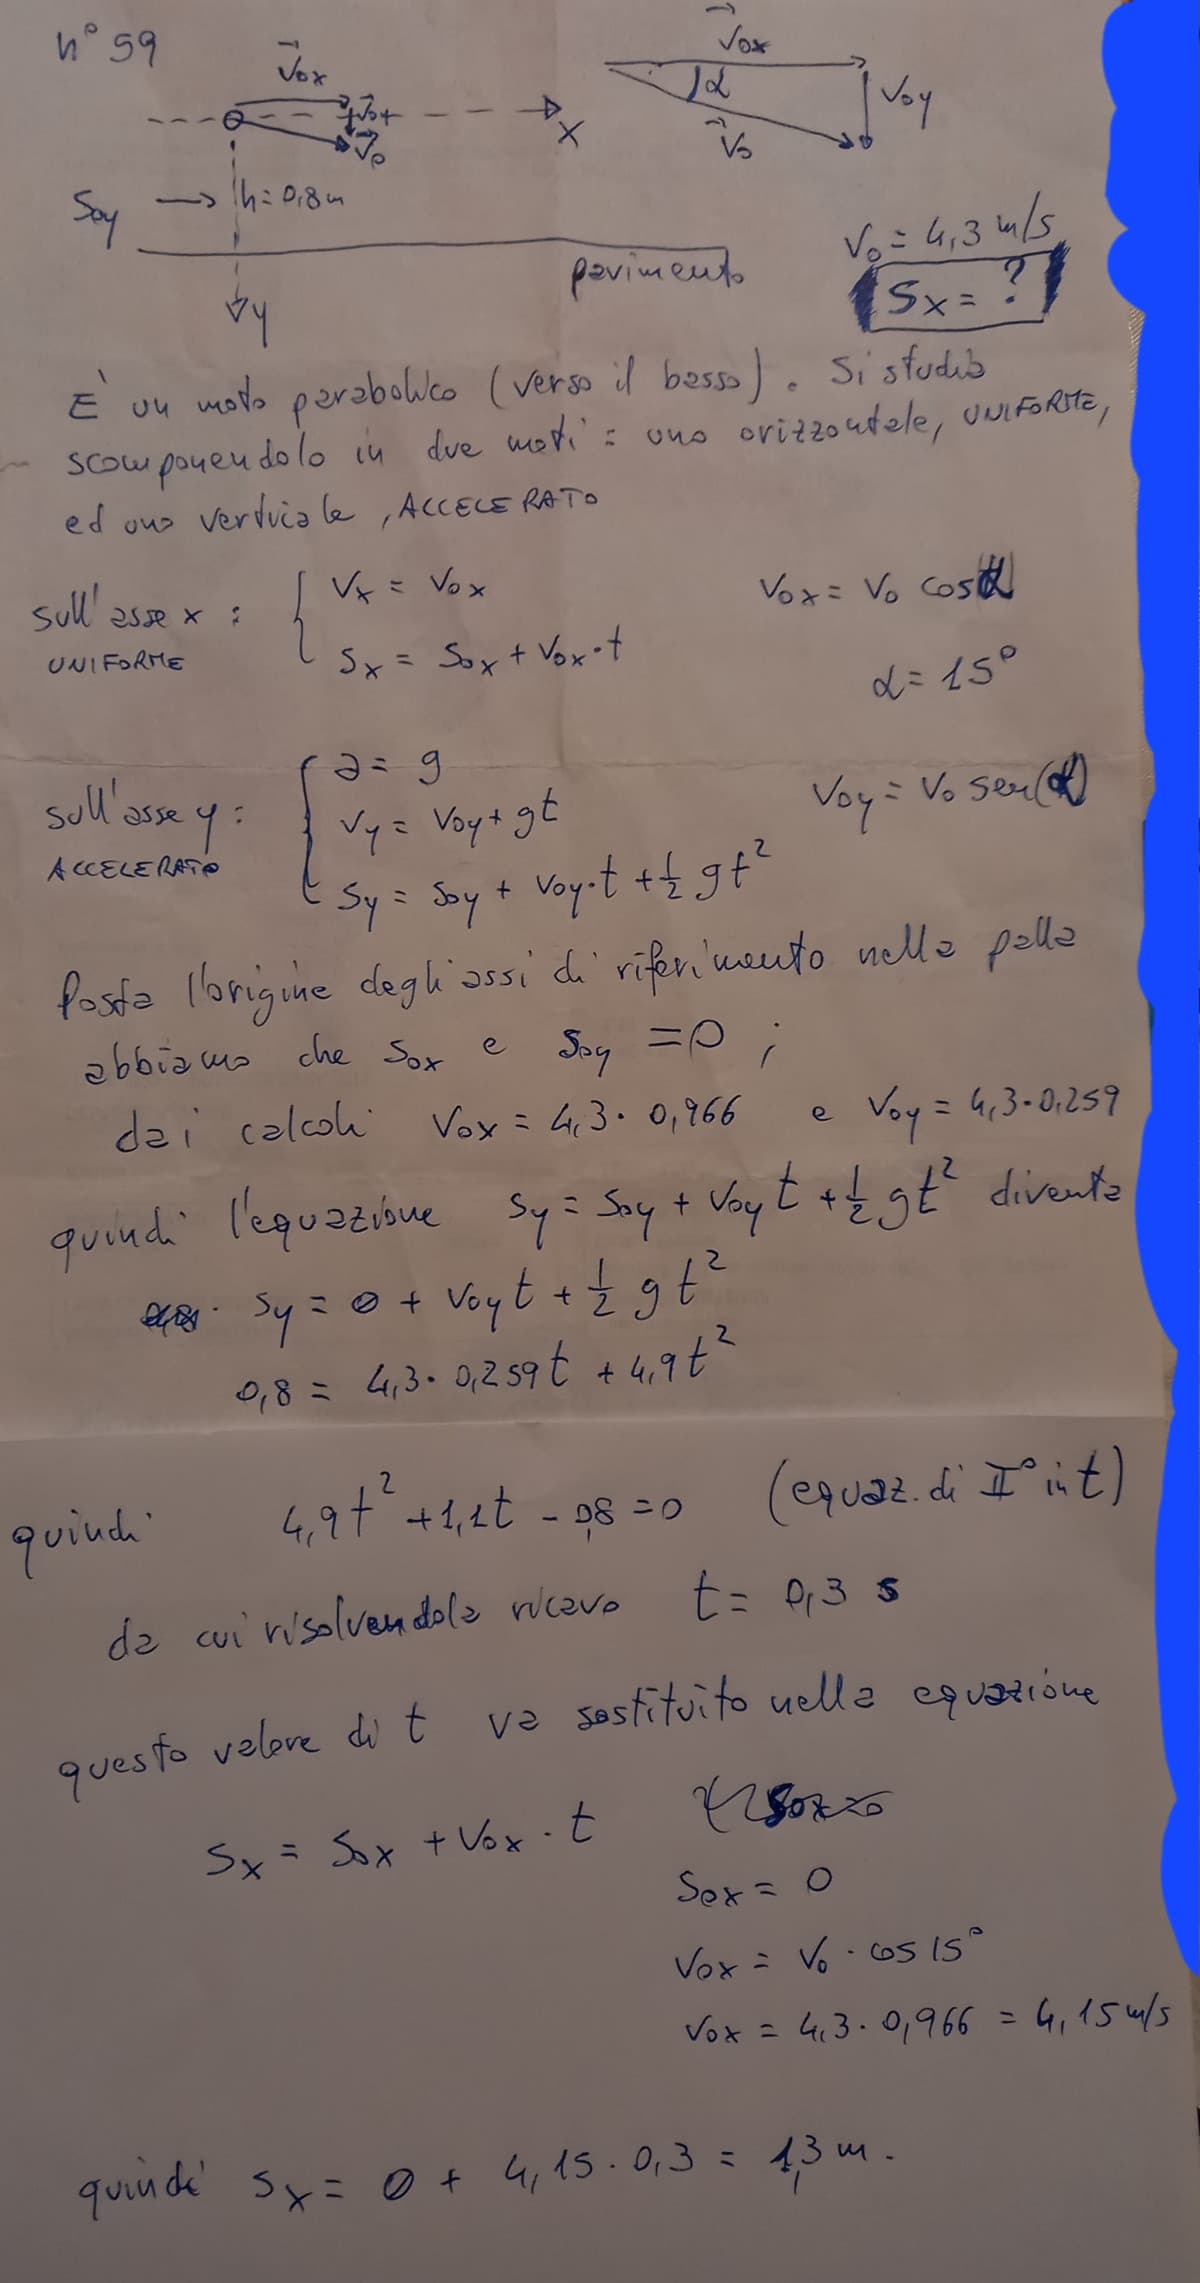 n° 59
V⃗ox
V⃗ox
α
Voy
V⃗o
V⃗o
x
Soy → h=0,8m
pavimento
y
Vo = 4,3 m/s
Sx = ?
È un moto parabolico (verso il basso). Si studia
scomponendolo in due moti: uno orizzontale, UNIFORME,
ed uno verticale, ACCELERATO
sull'asse x: { Vx = Vox
UNIFORME Sx = Sox + Vox·t
Vox = Vo cosα
α = 15°
sull'asse y: { a = g
ACCELERATO Vy = Voy + gt
Sy = Soy + Voy·t + 1/2 gt²
Voy = Vo sen(α)
Posta l'origine degli assi di riferimento nella palla
abbiamo che Sox e Soy = 0 ;
dai calcoli Vox = 4,3 · 0,966 e Voy = 4,3·0,259
quindi l'equazione Sy = Soy + Voy t + 1/2 gt² diventa
Sy = 0 + Voy t + 1/2 g t²
0,8 = 4,3 · 0,259 t + 4,9 t²
quindi 4,9 t² + 1,1t - 0,8 = 0 (equaz. di II° in t)
da cui risolvendola ricavo t = 0,3 s
questo valore di t va sostituito nella equazione
Sx = Sox + Vox · t
Sox = 0
Vox = Vo · cos 15°
Vox = 4,3 · 0,966 = 4,15 m/s
quindi Sx = 0 + 4,15 · 0,3 = 1,3 m.